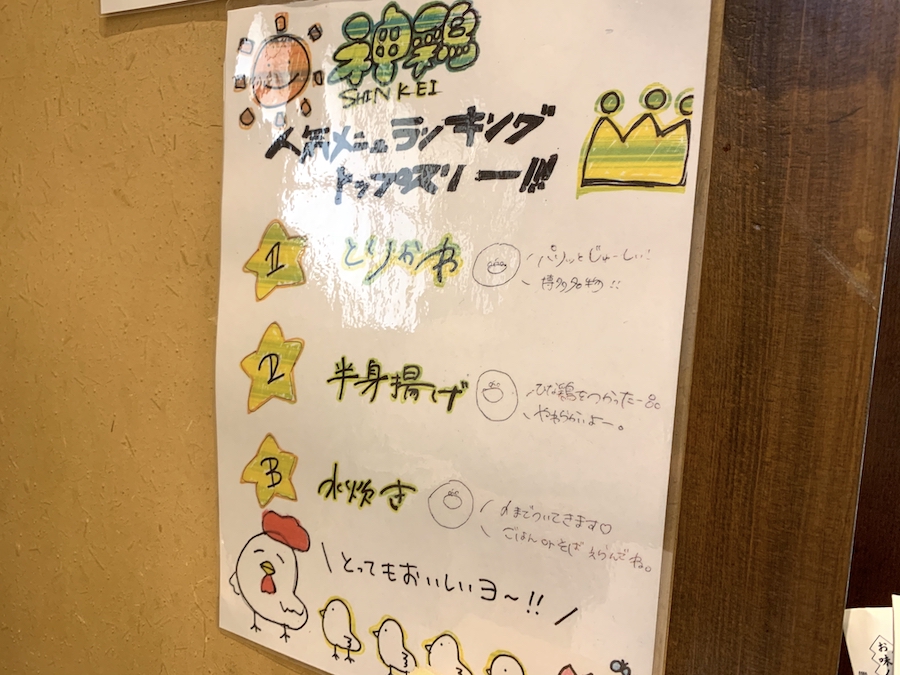 神鶏
SHINKEI
人気メニュランキング
トップスリー!!!
1
とりかわ
パリッとじゅーしぃ!
博多名物!!
2
半身揚げ
ひな鶏をつかった一品。
やわらかいよー。
3
水炊き
〆までついてきます♡
ごはん or そば えらんでね。
とってもおいしいヨ〜!!
お味